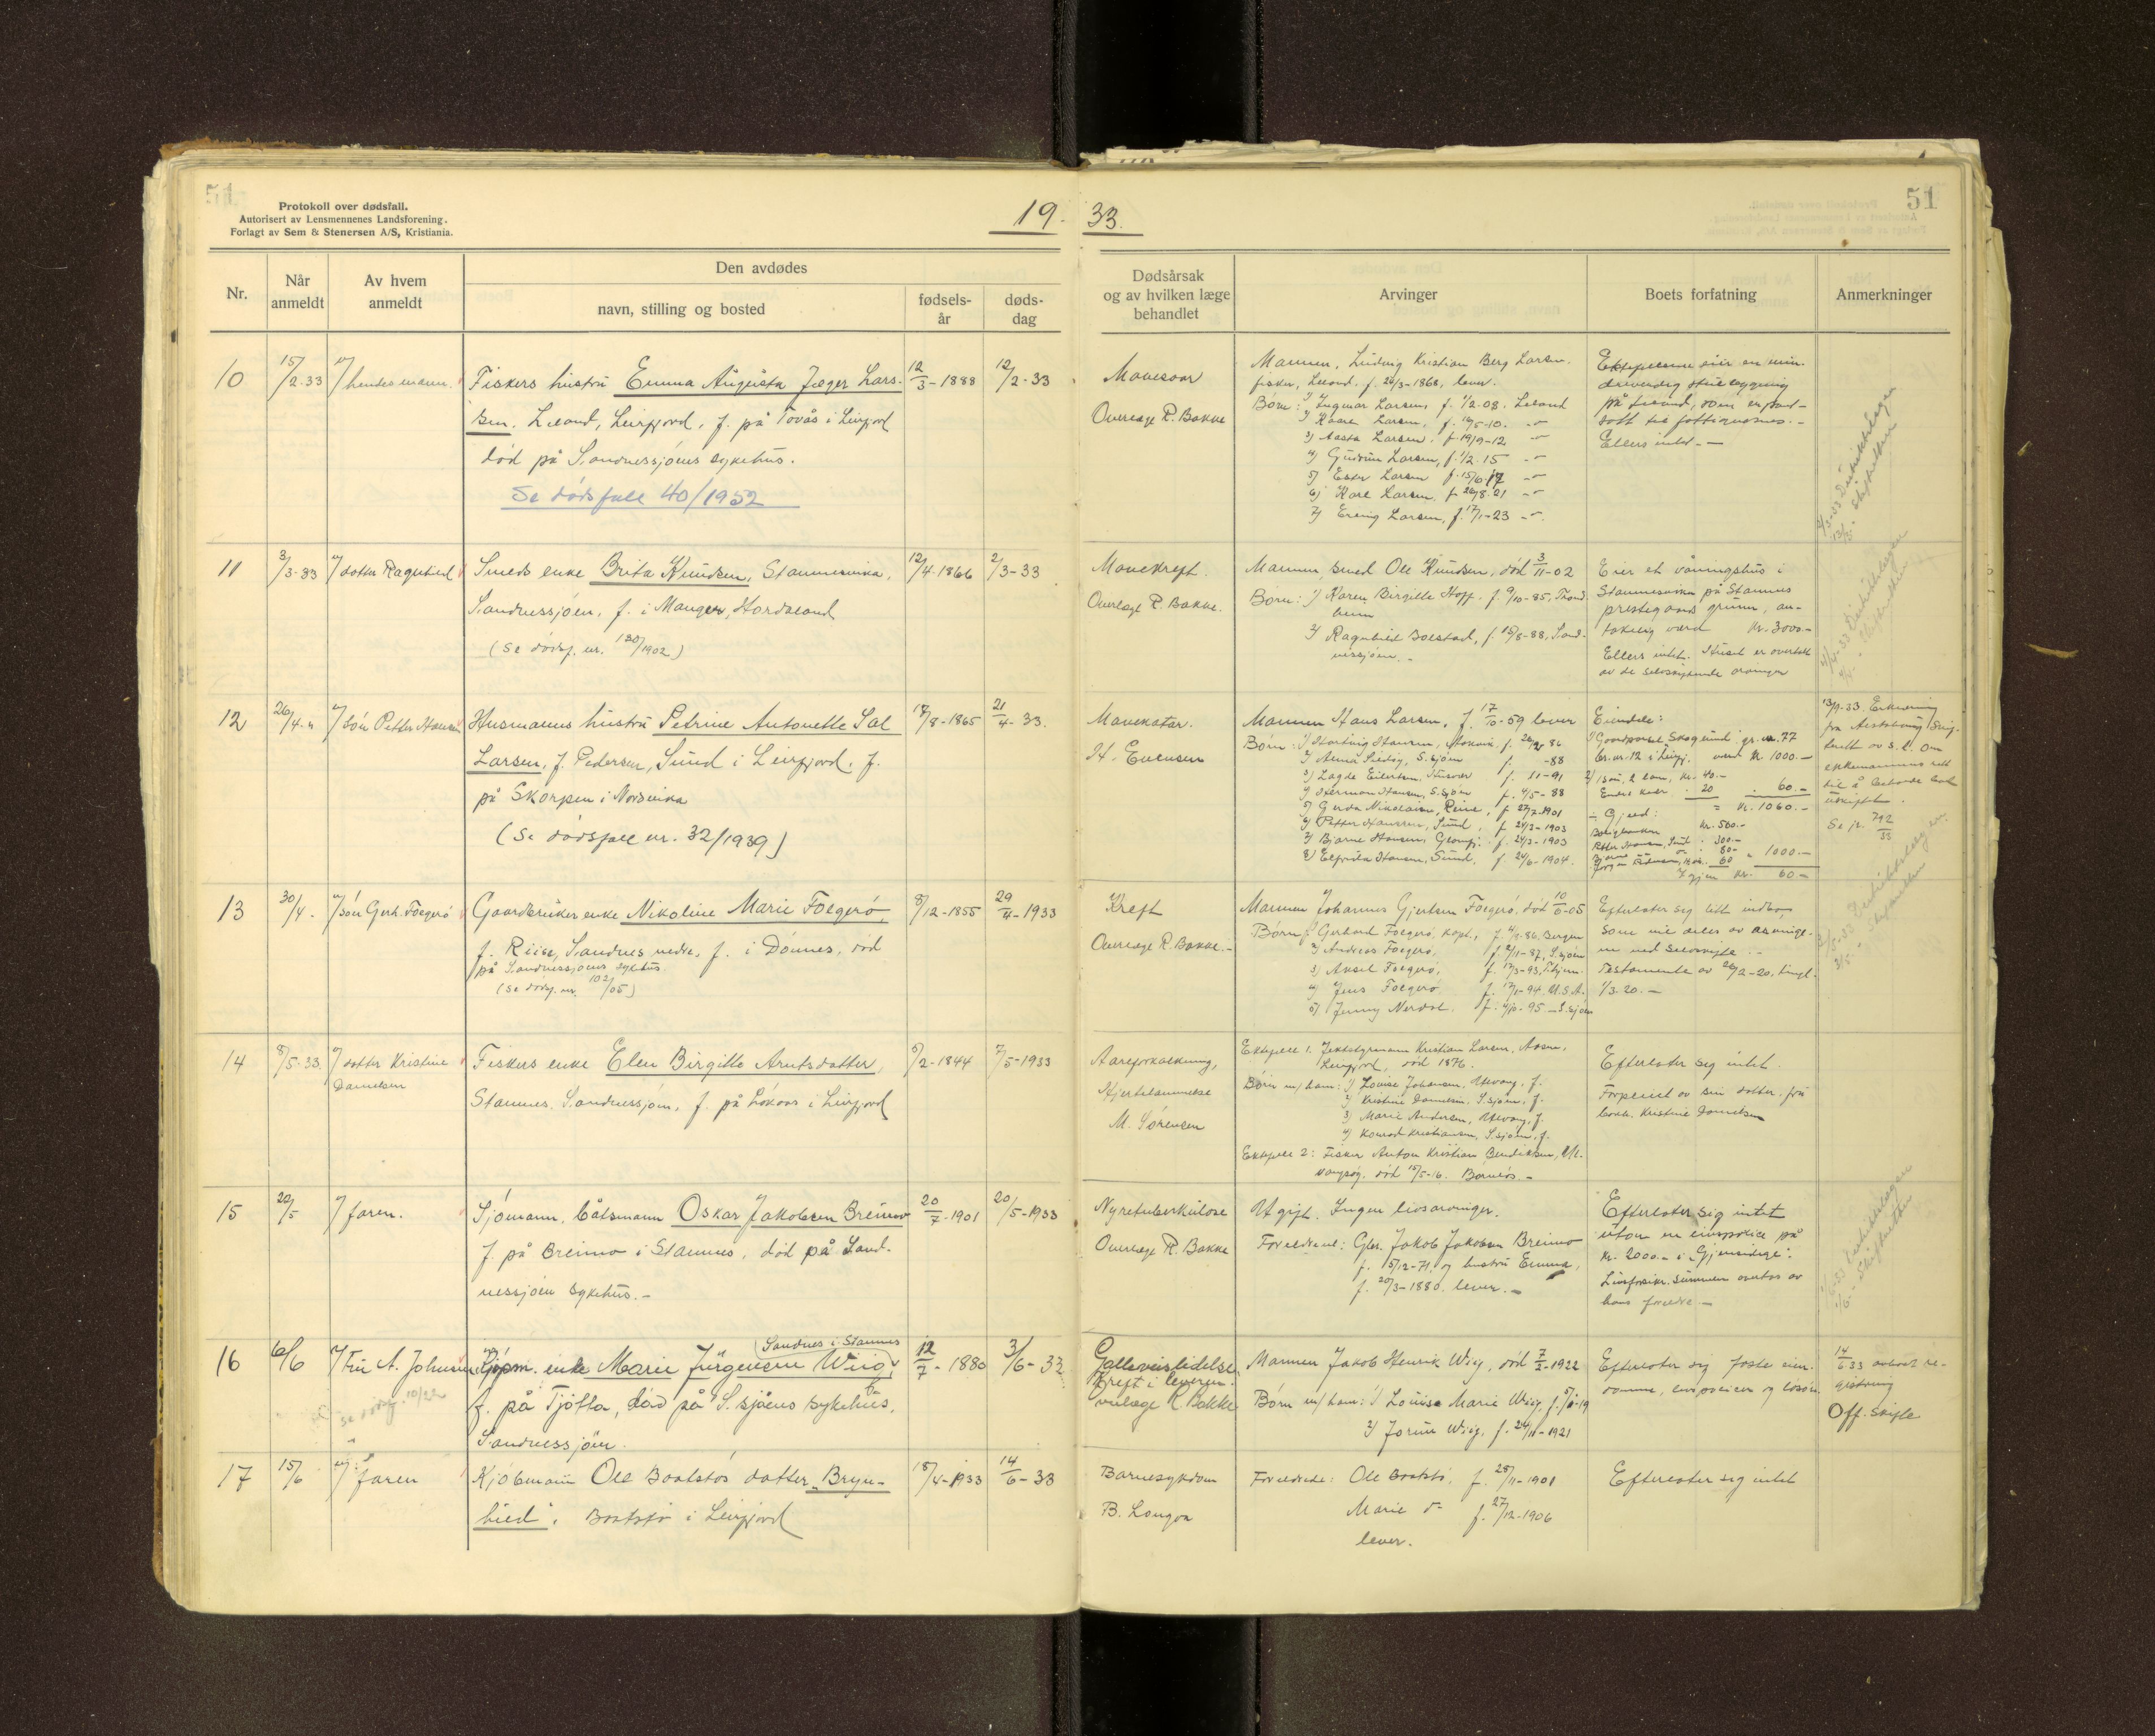 51
Protokoll over dødsfall.
Autorisert av Lensmennenes Landsforening.
Forlagt av Sem & Stenersen A/S, Kristiania.
19 33.
Nr.
Når anmeldt
Av hvem anmeldt
Den avdødes
navn, stilling og bosted
fødsels-år
døds-dag
Dødsårsak og av hvilken læge behandlet
Arvinger
Boets forfatning
Anmerkninger
10
15/2-33
v/ hendes mann.
Fiskers hustru Emma Augusta Jæger Lars-
sen, Leland, Leirfjord, f. på Tovås i Leirfjord
død på Sandnessjøens sykehus.
Se dødsfall 40/1952
12/3-1888
12/2-33
Mavesaar
Overlæge R. Bakke
Mannen, Ludvig Kristian Berg Larsen.
fisker, Leland. f. 24/3-1868, lever.
Børn: 1) Ingmar Larsen, f. 1/2-08. Leland
2) Kaare Larsen, f. 19/5-10. -"-
3) Aasta Larsen, f. 19/9-12 -"-
4) Gudrun Larsen, f. 1/2-15 -"-
5) Ester Larsen f. 15/6-17 -"-
6) Kåre Larsen f. 26/8-21 -"-
7) Erling Larsen, f. 17/1-23 -"-
Ektepellene eier en min-
dreverdig
på Leland, som er pant-
satt til fattigvæsnet. -
Ellers intet. -
11
3/3-33
v/ dotter Ragnhild
Smeds enke Brita Knudsen, Stamnesvika,
Sandnessjøen, f. i Manger, Hordaland
(Se dødsf. nr. 120/1902)
12/4-1866
2/3-33
Mavekreft.
Overlæge R. Bakke.
Mannen, smed Ole Knudsen, død 3/11-02
Born: 1) Karen Birgitte Hoff. f. 9/10-85, Trond-
heim
2) Ragnhild Bolstad, f. 15/8-88, Sand-
nessjøen. -
Eier et våningshus i
Stamnesvika på Stamnes
prestegårds grunn, an-
takelig værd kr. 3000.-
Ellers intet. Huset er overtatt
av de selvskiftende arvinger
12
26/4-"
v/ søn Petter Hansen
Husmanns hustru Petrine Antonette Sal
Larsen, f. Pedersen, Sund i Leirfjord. f.
på Skorpen i Nordvika
(Se dødsfall nr. 32/1939)
17/8-1865
21/4-33.
Mavekatar.
H. Evensen
Mannen Hans Larsen, f. 17/10-59 lever
Børn: 1) Hartvig Hansen,
2) Anna S.sjøen f. -88
3) Lagde Eilertsen, f. 11-91
4) Herman Hansen, S.sjøen f. 4/5-88
5) Gerda Nikolaisen, Reine, f. 27/7-1901
6) Petter Hansen, Sund, f. 24/3-1903
7) Bjarne Hansen, Glomfj. f. 24/3-1903
8) Elfrida Hansen, Sund, f. 24/6-1904.
Eiendele:
1) Gaardparsel Skoglund, gr. nr. 77
br. nr. 12 i Leirfj. værd kr. 1000.-
2) 1 sau, 2 lam, kr. 40.-
20 60.-
= kr. 1060.-
- Gjeld:
kr. 500.-
Petter Hansen, Sund " 300.-
1000.-
Igjen kr. 60.-
13/9-33. Erklæring
fra
av s.l. om
enkemannens rett
til å beholde boet
uskiftet.
Se jr. 792/33
13
30/4-
v/ søn Gerh. Følgerø
Gaardbruker enke Nikoline Marie Følgerø,
f. Reise, Sandnes nedre, f. i Dønnes, død
på Sandnessjøens sykehus.
(Se dødsf. nr. 102/05)
8/12-1855
29/4-1933
Kreft
Overlæge R. Bakke.-
Mannen Johannes Gjertsen Følgerø, død 10/6-05
Børn 1) Gerhard Følgerø, kapt., f. 4/9-86, Bergen
2) Andreas Følgerø, f. 2/11-87, S.sjøen
3) Aksel Følgerø, f. 17/3-93,
4) Jens Følgerø f. 17/1-94. U.S.A.
5) Jenny Nerdal. f. 4/10-95.- S.sjøen
Efterlater sig litt indbo,
som vil deles av arvinge-
ne ved selvskifte. -
Testamente av 26/2-20, tingl.
1/3.20.-
14
8/5-33.
v/ dotter Kristine
Danielsen
Fiskers enke Elen Birgitte Arntsdatter,
Stamnes, Sandnessjøen, f. på Låkaas i Leirfjord
5/2-1844
7/5-1933
Aareforkalkning,
Hjertelammelse
M. Sørensen
Ektefelle 1. Jektstyrmann Kristian Larsen,
Leirfjord, død 1876.
Børn m/ham: 1) Lovise Johansen, Ulvang, f.
2) Kristine Danielsen, S.sjøen, f.
3) Marie Andersen, Ulvang, f.
4) Konrad Kristiansen, S.sjøen, f.
Ektefelle 2: Fisker Anton Kristian Bendiksen, Ul-
vangsøy, død 15/5-16. Barnløs.-
Efterlater sig intet.
Forpleiet av sin dotter, fru
Kristine Danielsen
15
20/5
v/ faren.
Sjømann, båtsmann Oskar Jakobsen Breimo
f. på Breimo i Stamnes, død på Sand-
nessjøen sykehus.-
20/7-1901
20/5-1933
Nyretuberkulose
Overlæge R. Bakke
Ugift. Ingen livsarvinger.
Foreldrene: Gbr. Jakob Jakobsen Breimo
f. 5/12-71, og hustru Emma,
f. 20/3-1880. lever.-
Efterlater sig intet
uten en livspolice på
kr. 2000.- i "Gjensidige".
Livsforsikr. summen
hans foreldre.-
16
6/6
v/ Fru A. Johnsen
se dødsf. 10/22
Kjøpm. enke Marie Jürgensen Wiig,
Sandnes i Stamnes
f. på Tjøtta, død på S.sjøens sykehus,
Sandnessjøen.
12/7-1880
3/6-33
Galleveislidelse.
Kreft i leveren.
Overlæge R Bakke
Mannen Jakob Henrik Wiig, død 7/2-1922
Børn m/ham: 1) Lovise Marie Wiig f.
2) Jorun Wiig, f. 24/11-1921
Efterlater sig faste eien-
domme, livspolicer og løsøre
14/6 33 avholdt re-
gistrering
Off. skifte
17
15/6
v/ faren
Kjøbmann Ole Baatstøs datter "Bryn-
hild", Baatstø i Leirfjord
18/4-1933
14/6-33
Barnesykdom
B. Langva
Foreldrene: Ole Baatstø, f. 28/11-1901
Marie do f. 27/12-1906
lever.
Efterlater sig intet